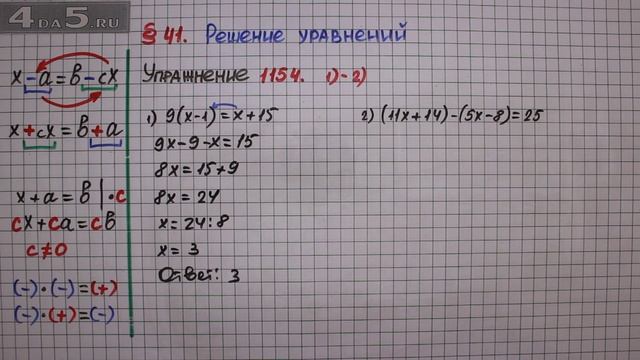 4DA5.RU
§ 41. Решение уравнений
Упражнение 1154. 1)-2)
x-a=b-cx
x+cx=b+a
x+a=b |·c
cx+ca=cb
c≠0
(-)·(-)=(+)
(-)·(+)=(-)
1) 9(x-1)=x+15
9x-9-x=15
8x=15+9
8x=24
x=24:8
x=3
Ответ: 3
2) (11x+14)-(5x-8)=25